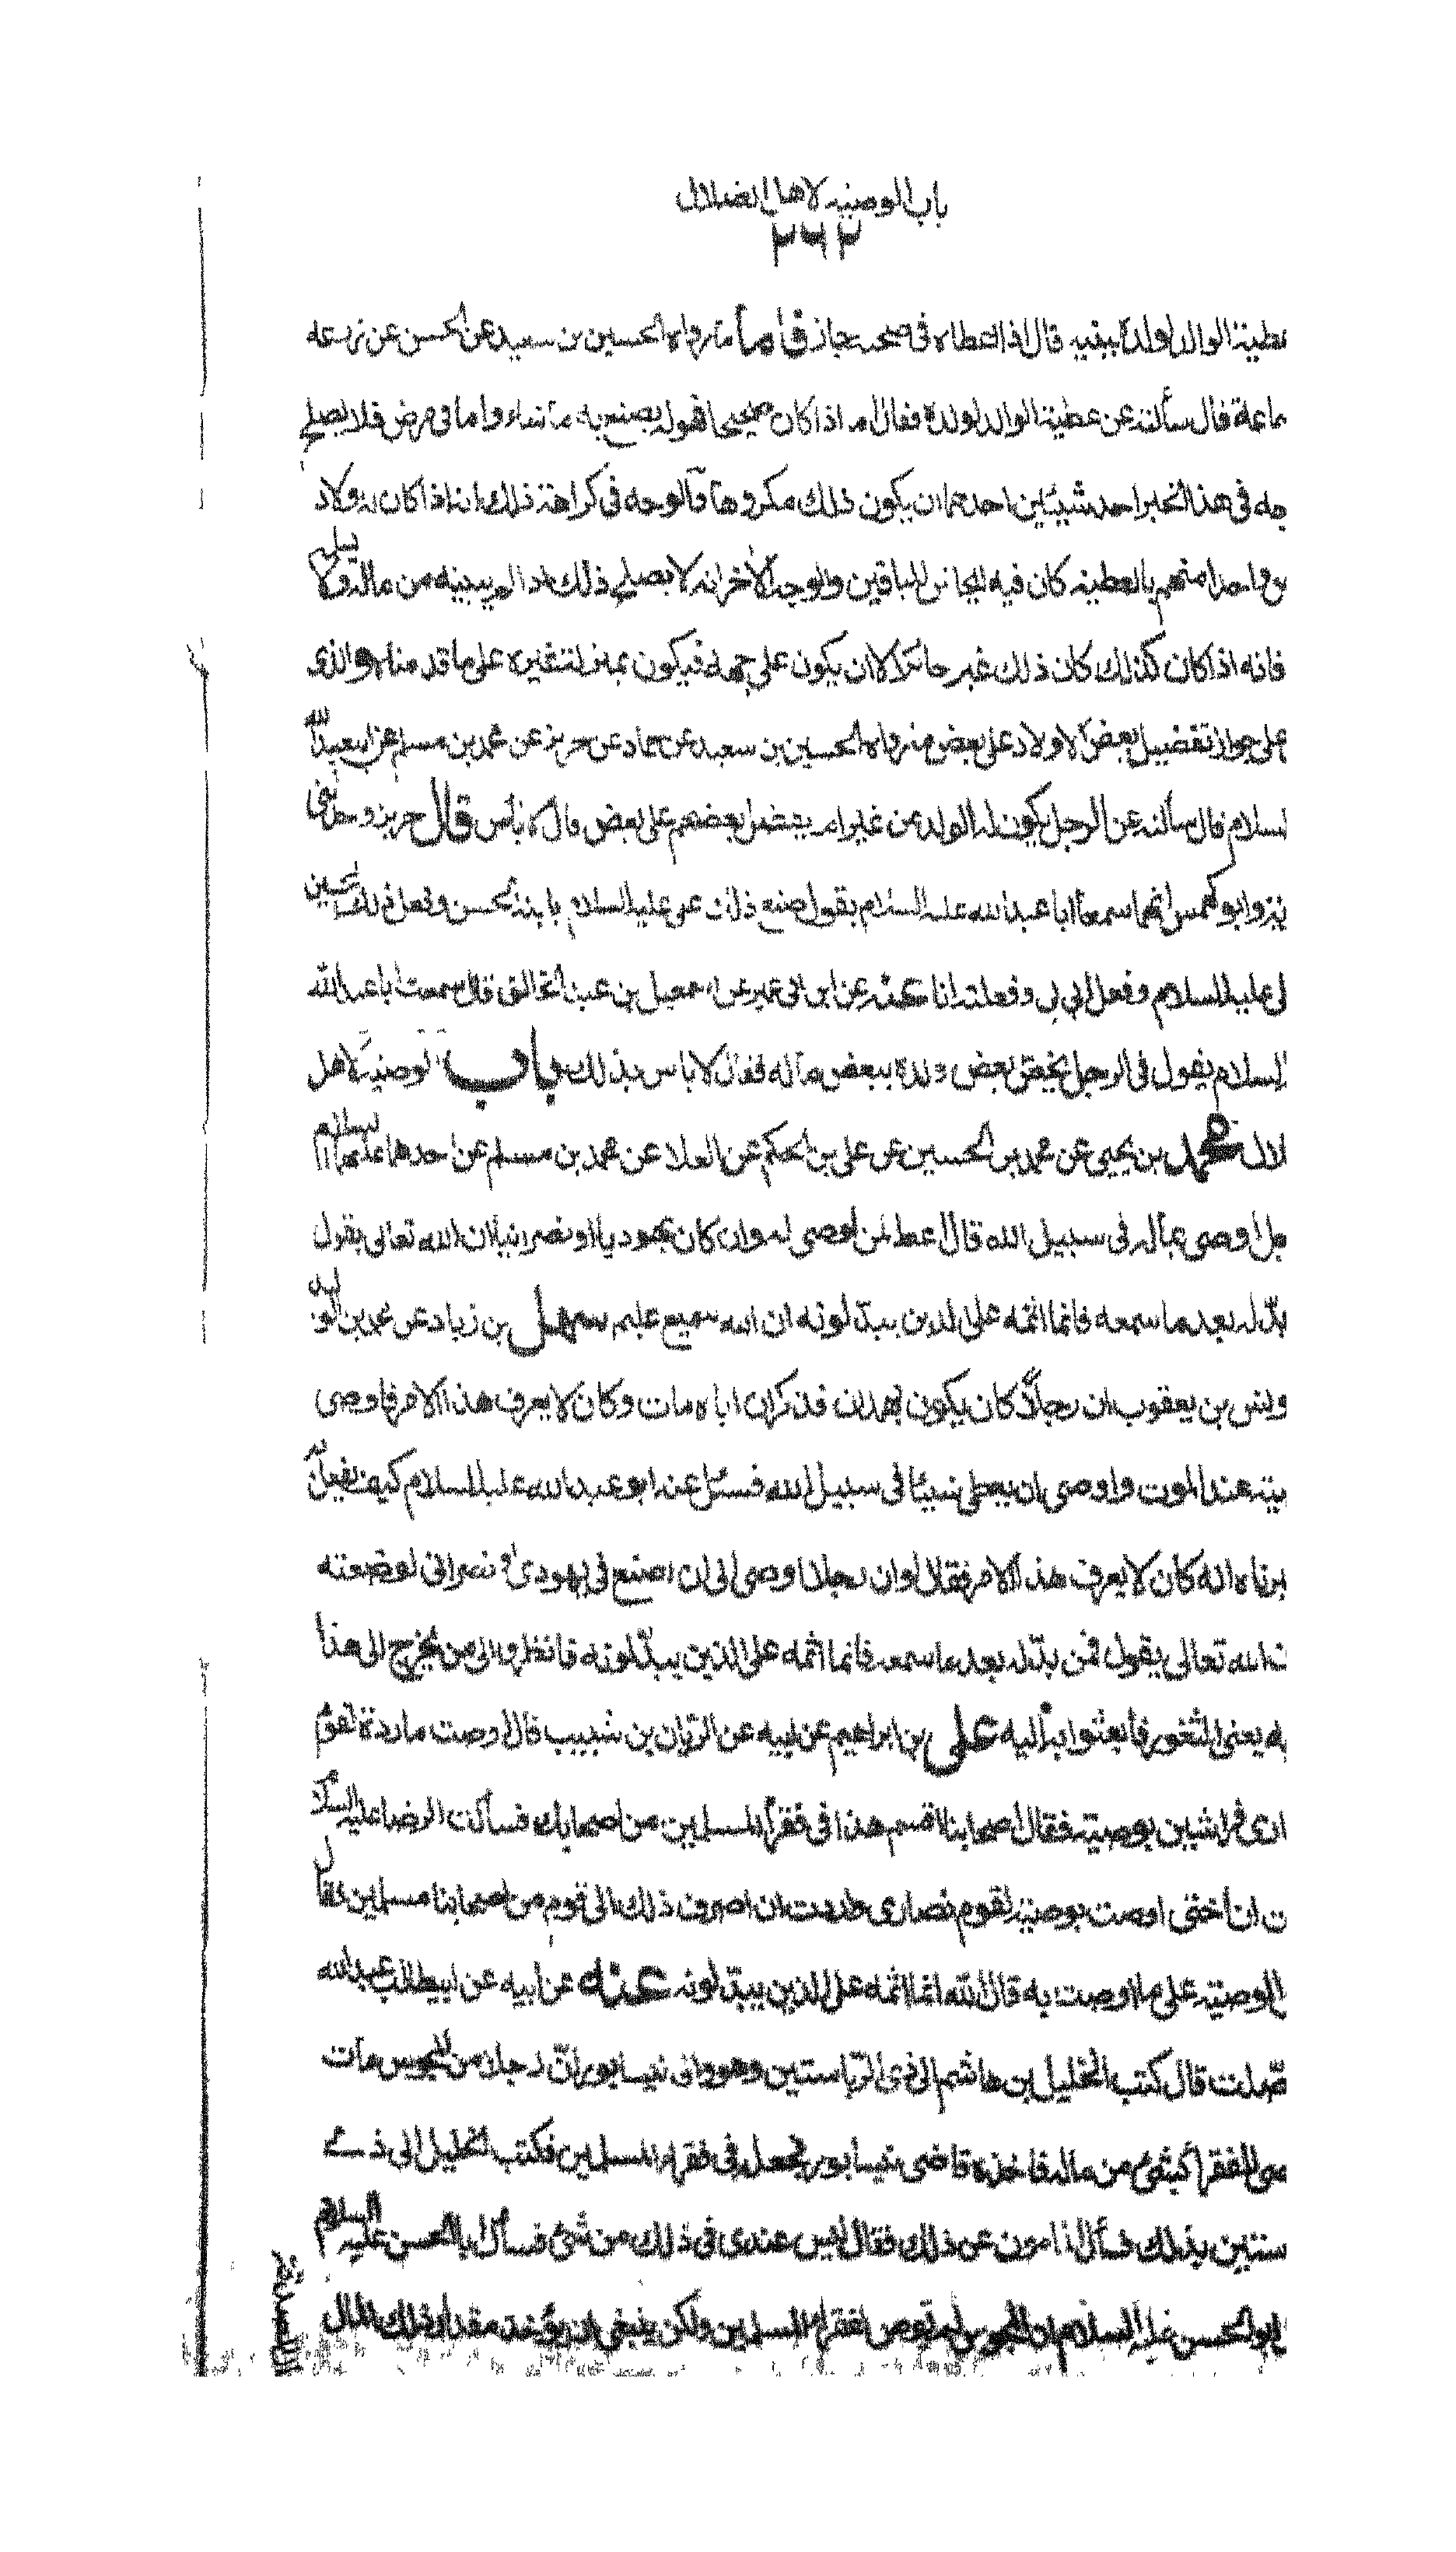 باب الوصية لاهل الضلال
٢٦٢
عطية الوالد لولده ببينة قال اذا اعطاه في صحته جاز فاما ما رواه الحسين بن سعيد عن الحسن عن زرعة
سماعة قال سألته عن عطية الوالد لولده فقال اما اذا كان صحيحا فهو له يصنع به ما شاء واما في مرض فلا يصلح
جه في هذا الخبر احد شيئين احدهما ان يكون ذلك مكروها والوجه في كراهة ذلك انه اذا كان له اولاد
ص واحدا منهم بالعطية كان فيه ايحاش للباقين والوجه الآخر انه لا يصلح ذلك اذا لم يبينه من ماله ولا يسلمه
فانه اذا كان كذلك كان ذلك غير جائز الا ان يكون على جهة فيكون بمنزلة غيره على ما قدمناه والذي
على جواز تفضيل بعض الاولاد على بعض ما رواه الحسين بن سعيد عن حماد عن حريز عن محمد بن مسلم عن ابي عبد الله
السلام قال سألته عن الرجل يكون له الولد من غير ام يفضل بعضهم على بعض قال لا بأس قال حريز وحدثني
يز وابو كهمس انهما سمعا ابا عبد الله عليه السلام يقول صنع ذلك علي عليه السلام بابنه الحسن وفعل ذلك الحسين
لي عليه السلام وفعل ابي بي وفعلته انا عنه عن ابن ابي عمير عن اسمعيل بن عبد الخالق قال سمعت ابا عبد الله
السلام يقول في الرجل يخص بعض ولده ببعض ماله فقال لا باس بذلك باب الوصية لاهل
لال محمد بن يحيى عن محمد بن الحسين عن علي بن الحكم عن العلا عن محمد بن مسلم عن احدهما عليهما السلام
جل اوصى بماله في سبيل الله قال اعط لمن اوصى له وان كان يهوديا او نصرانيا ان الله تعالى يقول
بدله بعد ما سمعه فانما اثمه على الذين يبدلونه ان الله سميع عليم سهل بن زياد عن محمد بن الوليد
ونس بن يعقوب ان رجلا كان يكون بهمدان فذكر ان اباه مات وكان لا يعرف هذا الامر فاوصى
يته عند الموت واوصى ان يعطى شيئا في سبيل الله فسئل عنه ابو عبد الله عليه السلام كيف نفعل به
برناه انه كان لا يعرف هذا الامر فقال لو ان رجلا اوصى الي ان اصنع في يهودي او نصراني لوضعته
ن الله تعالى يقول فمن بدله بعد ما سمعه فانما اثمه على الذين يبدلونه فانظروا الى من يخرج الى هذا
به يعني الثغور فأبعثوا به اليه علي بن ابراهيم عن ابيه عن الريان بن شبيب قال اوصت ماردة لقوم
ارى فراشين بوصية فقال اصحابنا اقسم هذا في فقراء المسلمين من اصحابك فسألت الرضا عليه السلام
ت ان أختي اوصت بوصية لقوم نصارى واردت ان اصرف ذلك الى قوم من اصحابنا مسلمين فقال
الوصية على ما اوصت به قال الله انما اثمه على الذين يبدلونه عنه عن ابيه عن ابي طالب عبد الله
صلت قال كتب الخليل بن هاشم الى ذي الرياستين وهو والي نيسابور ان رجلا من المجوس مات
صى للفقراء بشئ من ماله فاخذه قاضي نيسابور فجعله في فقراء المسلمين فكتب الخليل الى ذي
ستين بذلك فسأل المامون عن ذلك فقال ليس عندي في ذلك من شئ فسأل ابا الحسن عليه السلام
ل ابو الحسن عليه السلام ان المجوسي لم يوص لفقراء المسلمين ولكن ينبغي ان يؤخذ مقدار ذلك المال